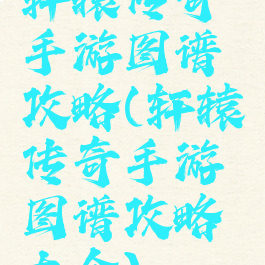 轩辕传奇
手游图谱
攻略(轩辕
传奇手游
图谱攻略
大全)